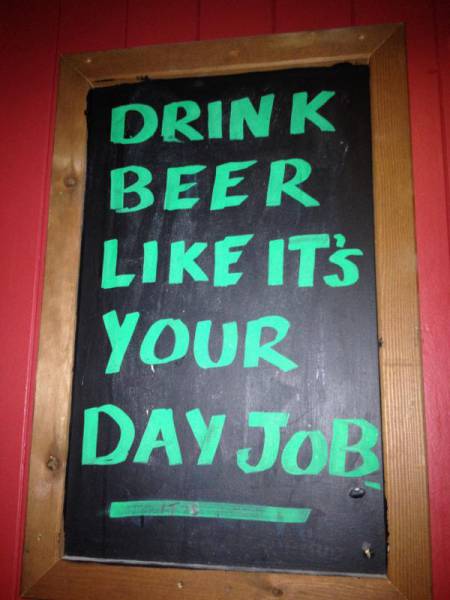 DRINK
BEER
LIKE IT'S
YOUR
DAY JOB